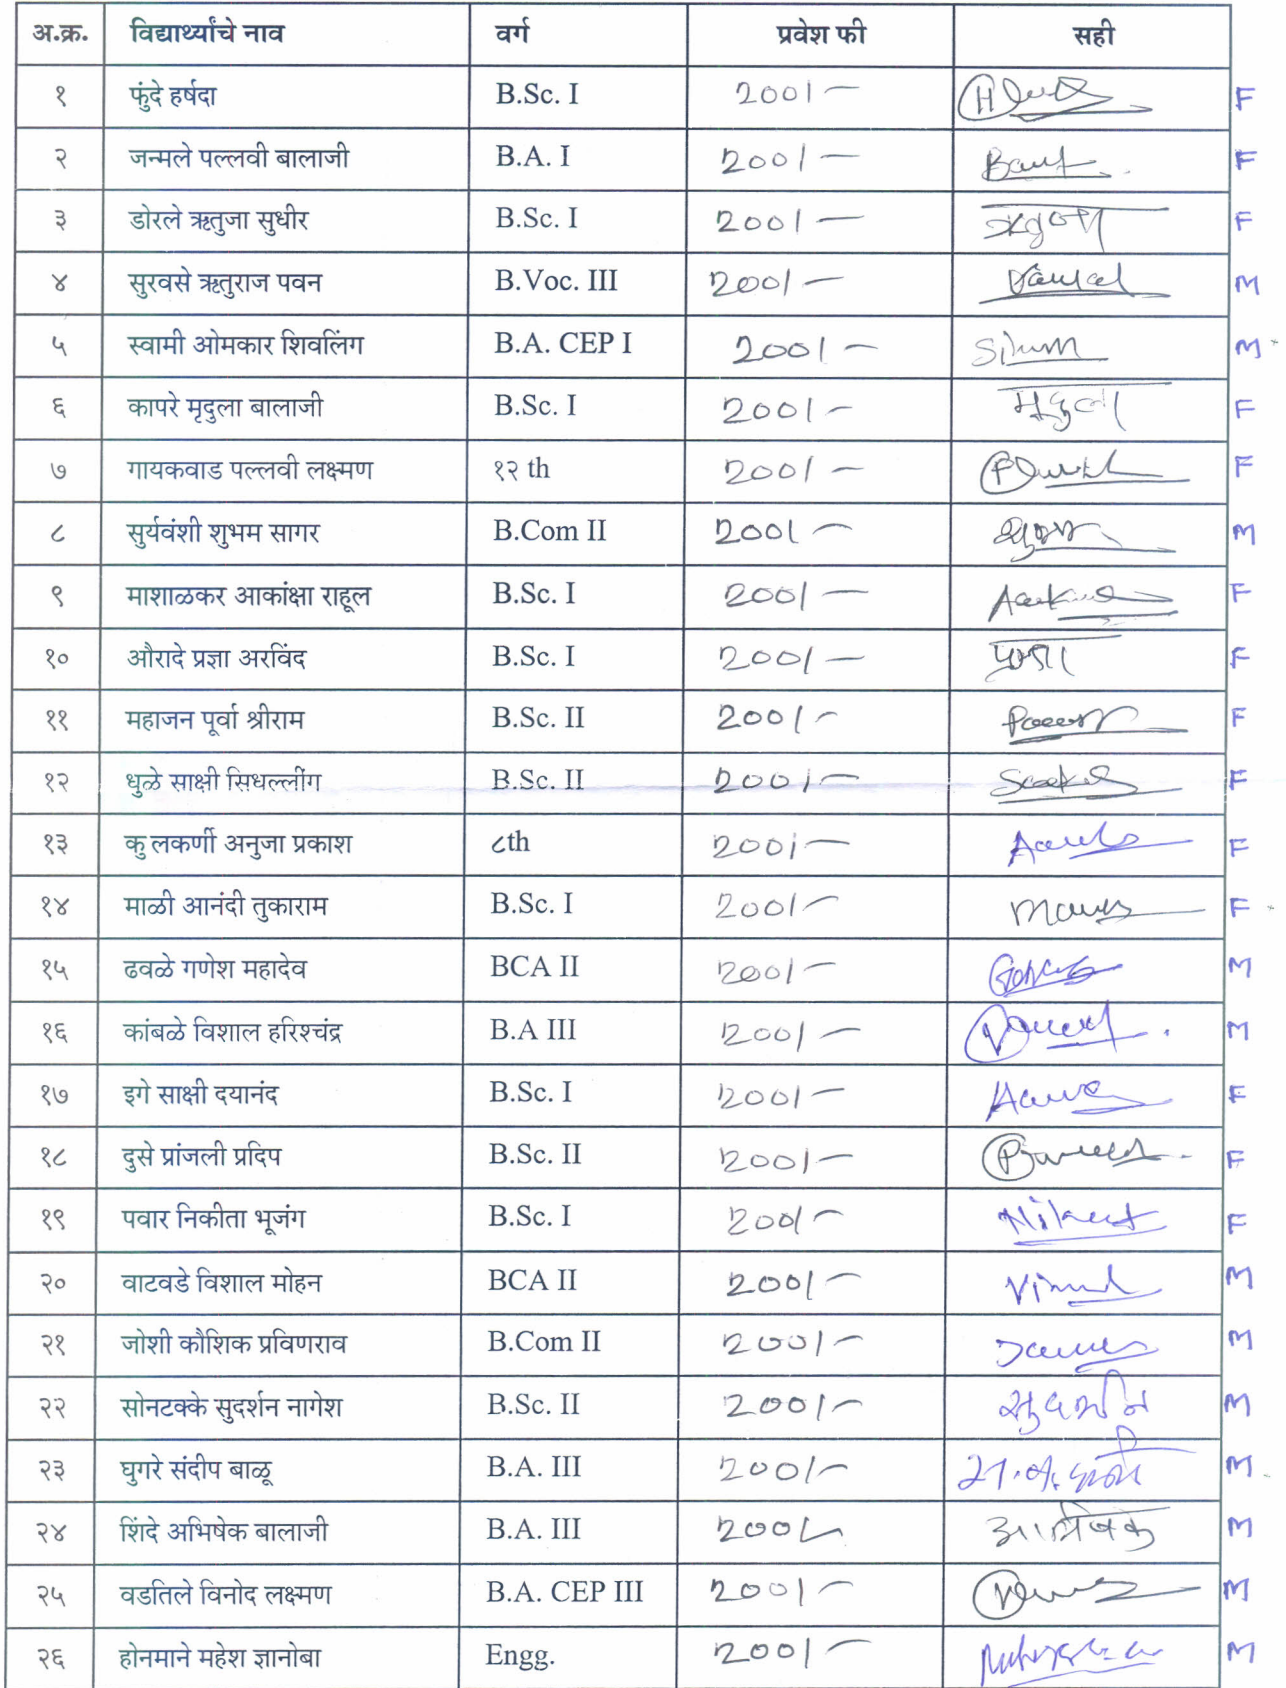 अ.क्र. विद्यार्थ्यांचे नाव वर्ग प्रवेश फी सही
१ फुंदे हर्षदा B.Sc. I 200/- F
२ जन्मले पल्लवी बालाजी B.A. I 200/- F
३ डोरले ऋतुजा सुधीर B.Sc. I 200/- ऋतुजा F
४ सुरवसे ऋतुराज पवन B.Voc. III 200/- M
५ स्वामी ओमकार शिवलिंग B.A. CEP I 200/- M
६ कापरे मृदुला बालाजी B.Sc. I 200/- मृदुला F
७ गायकवाड पल्लवी लक्ष्मण १२ th 200/- F
८ सुर्यवंशी शुभम सागर B.Com II 200/- M
९ माशाळकर आकांक्षा राहूल B.Sc. I 200/- F
१० औरादे प्रज्ञा अरविंद B.Sc. I 200/- प्रज्ञा F
११ महाजन पूर्वा श्रीराम B.Sc. II 200/- F
१२ धुळे साक्षी सिधल्लींग B.Sc. II 200/- F
१३ कुलकर्णी अनुजा प्रकाश ८th 200/- F
१४ माळी आनंदी तुकाराम B.Sc. I 200/- F
१५ ढवळे गणेश महादेव BCA II 200/- M
१६ कांबळे विशाल हरिश्चंद्र B.A III 200/- M
१७ इगे साक्षी दयानंद B.Sc. I 200/- F
१८ दुसे प्रांजली प्रदिप B.Sc. II 200/- F
१९ पवार निकीता भूजंग B.Sc. I 200/- F
२० वाटवडे विशाल मोहन BCA II 200/- M
२१ जोशी कौशिक प्रविणराव B.Com II 200/- M
२२ सोनटक्के सुदर्शन नागेश B.Sc. II 200/- सुदर्शन M
२३ घुगरे संदीप बाळू B.A. III 200/- M
२४ शिंदे अभिषेक बालाजी B.A. III 200/- अभिषेक M
२५ वडतिले विनोद लक्ष्मण B.A. CEP III 200/- M
२६ होनमाने महेश ज्ञानोबा Engg. 200/- M